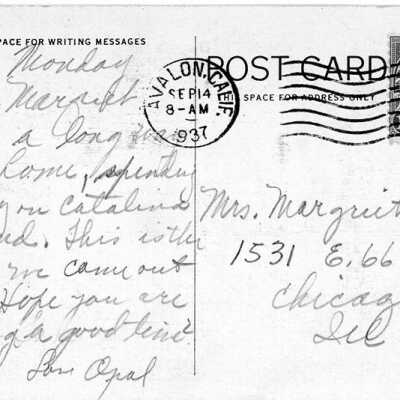 PACE FOR WRITING MESSAGES
POST CARD
THIS SPACE FOR ADDRESS ONLY
AVALON, CALIF.
SEP 14
8-AM
1937
Monday
a long way
home, spending
on Catalina
nd. This is the
we came out
Hope you are
g a good time
Love Opal
Mrs. Margriet
1531 E. 66
Chicag
Ill